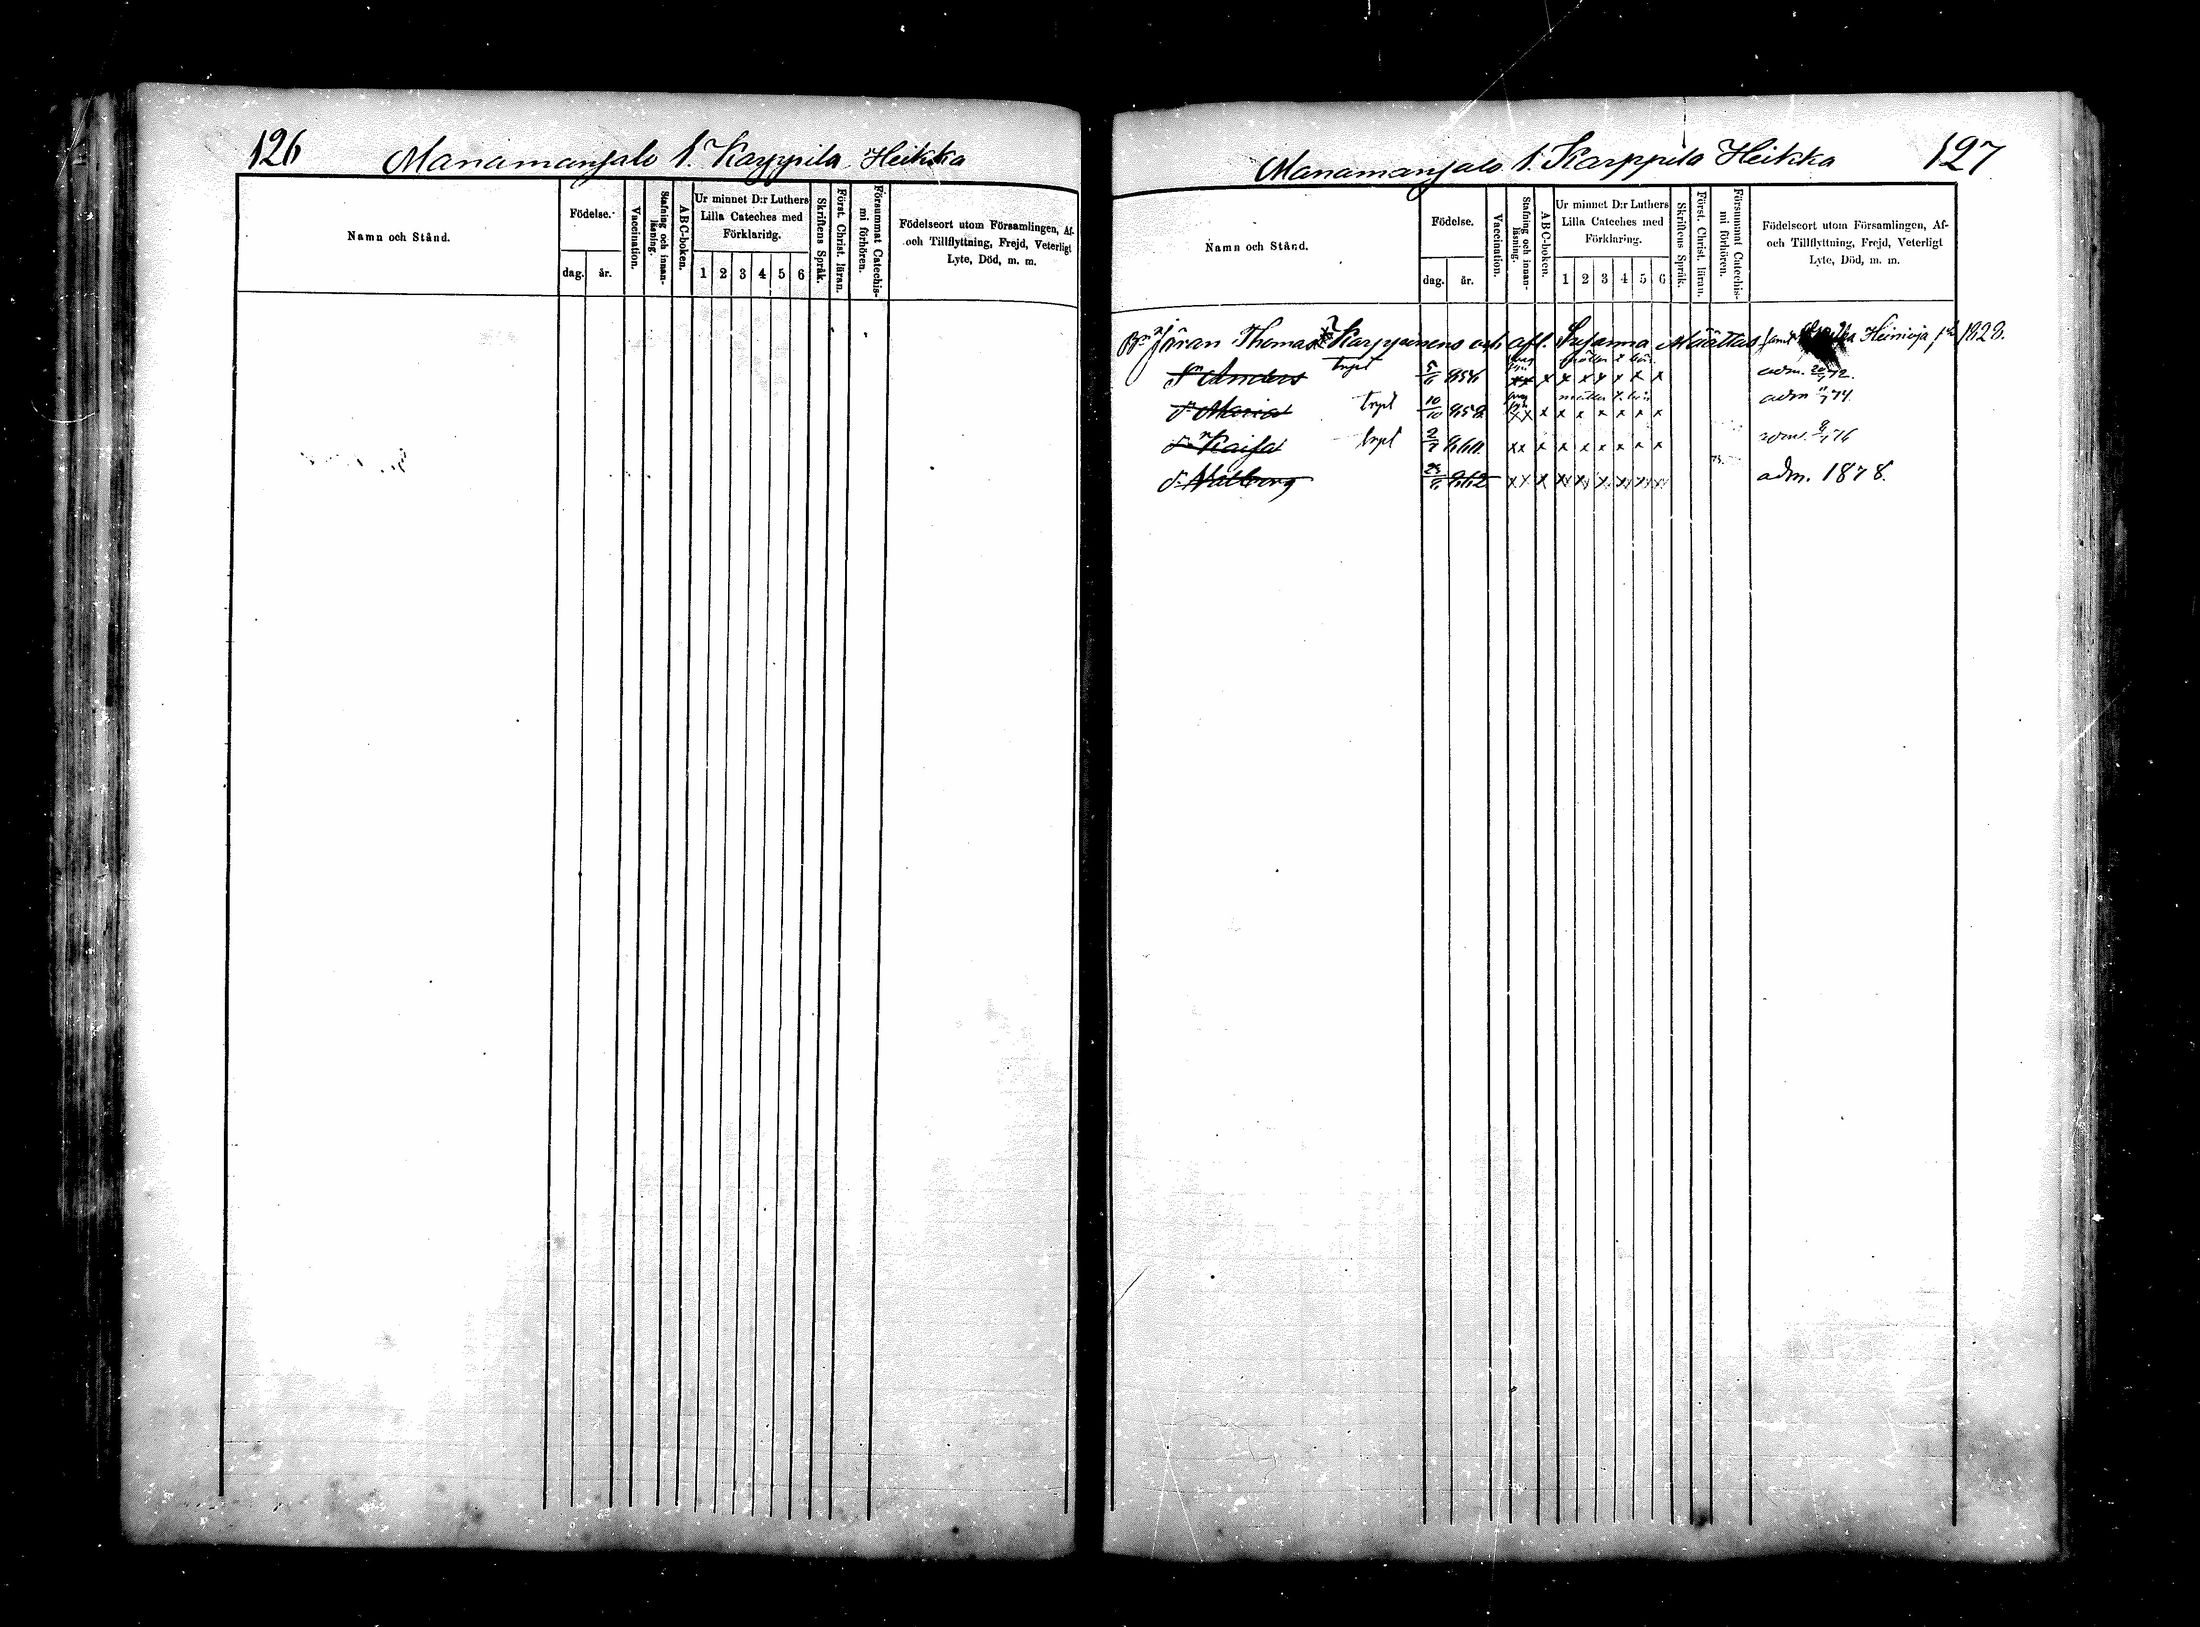 126
Manamansalo 1. Karppila Heikka
Namn och Stånd.
Födelse.
dag.
år.
Vaccination.
Stafning och innanläsning.
ABC-boken.
Ur minnet D:r Luthers Lilla Cateches med Förklaring.
1 2 3 4 5 6
Skriftens Språk.
Först. Christ. läran.
Försummat Catechismi förhören.
Födelseort utom Församlingen, Af- och Tillflyttning, Frejd, Veterligt Lyte, Död, m. m.
Manamansalo 1. Karppila Heikka
127
Namn och Stånd.
Födelse.
dag.
år.
Vaccination.
Stafning och innanläsning.
ABC-boken.
Ur minnet D:r Luthers Lilla Cateches med Förklaring.
1 2 3 4 5 6
Skriftens Språk.
Först. Christ. läran.
Försummat Catechismi förhören.
Födelseort utom Församlingen, Af- och Tillflyttning, Frejd, Veterligt Lyte, Död, m. m.
Bn Jöran Thomas Karppinens och afl. Susanna Määttas Heinioja, 1828.
Sn Anders 5/6 856 x x x x x x x adm. 72.
d. Maria 10/10 858 x x x x x x x x x adm 74.
d. Kaisa 2/7 860 x x x x x x x x x adm. 76
d. Walborg 23/5 862 x x x x x x x x x adm. 1878.